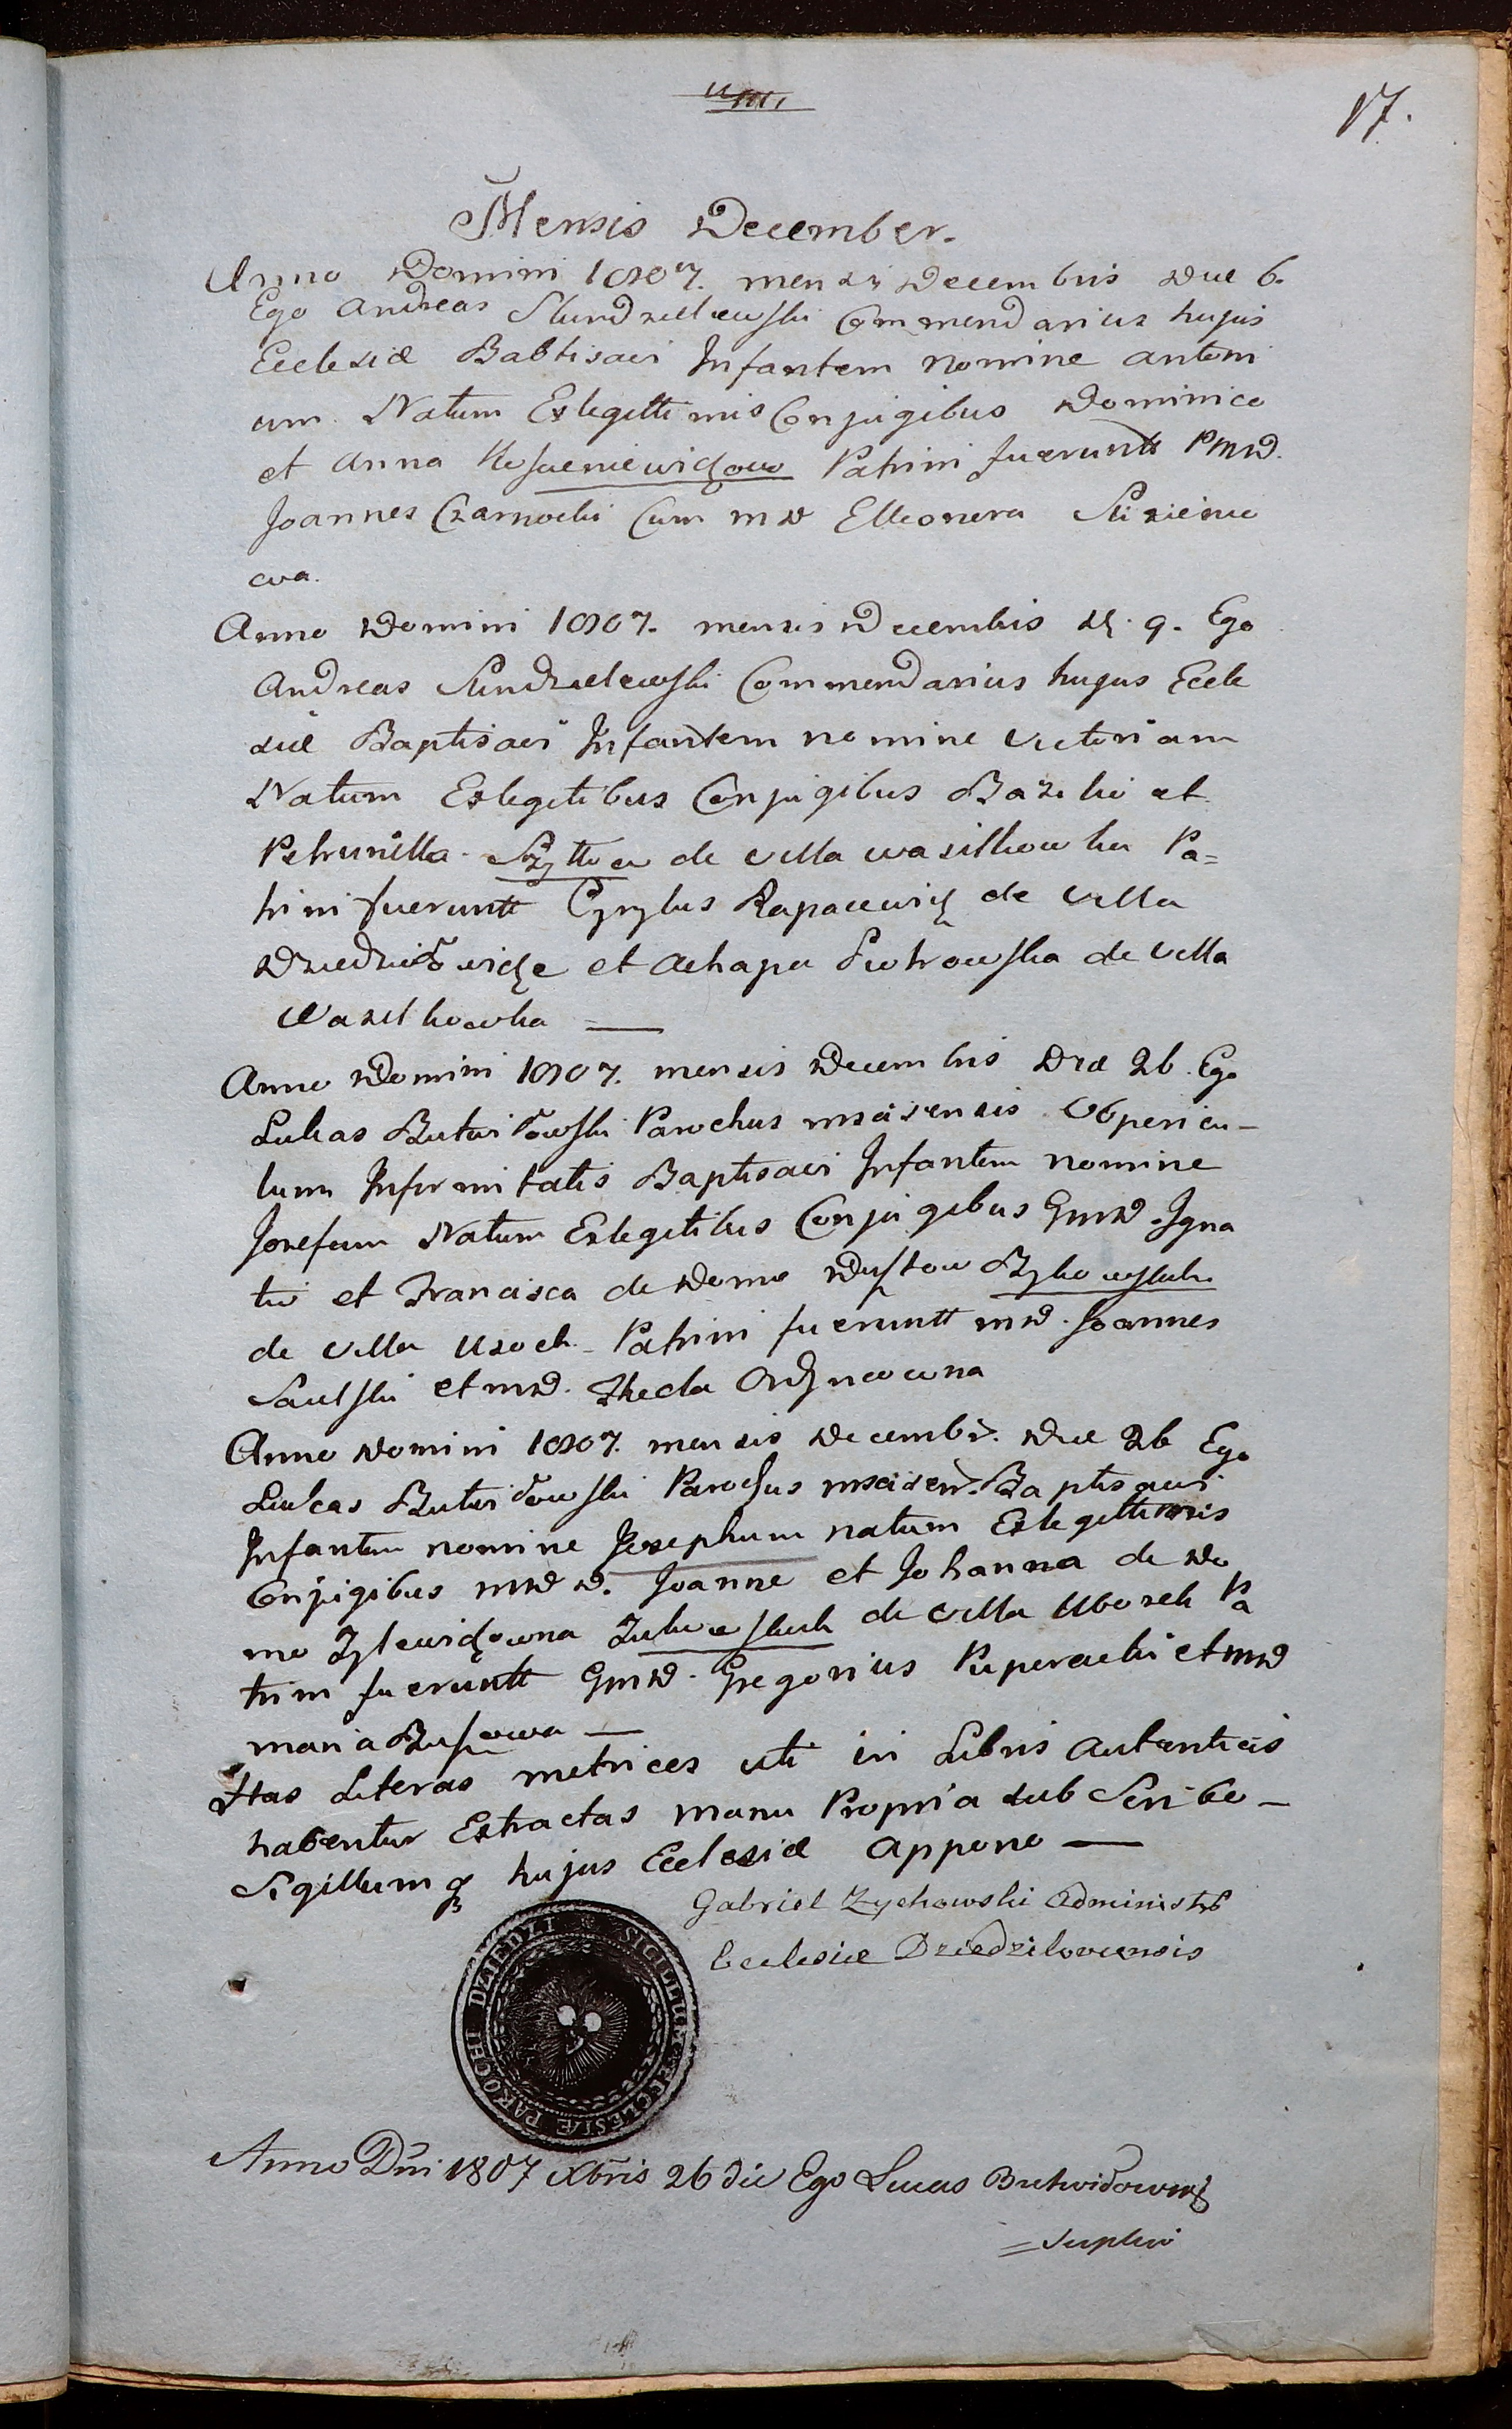 17.
Mensis December.
Anno Domini 1807. mensis Decembris Die 6.
Ego Andreas Commendarius hujus
Ecclesiæ Babtisavi Infantem nomine antoni
um Natum Exlegittimis Conjugibus Dominico
et Anna Patrini fueruntt PMD.
Joannes Czarnocki Cum MD Elleonora
cva.
Anno Domini 1807. mensis Decembris D. 9. Ego
Andreas Commendarius hugus Eccle
siæ Baptisavi Infantem nomine Victoriam
Natum Exlegitibus Conjugibus Bazilio et
Petrunella de villa wasilkowka Pa=
trini fueruntt Cyrylus Rapacewicz de villa
Dziedziłowicze et Achapa Piotrowska de villa
Wasilkowka —
Anno Domini 1807. mensis Decembris Die 26. Ego
Lukas Butwidowski Parochus msciżensis Obpericu-
lum Infirmitatis Baptisavi Infantem nomine
Josefum Natum Exlegitibus Conjugibus GMD. Igna
tio et Francisca de Domo
de villa Uzoch Patrini fueruntt MD. Joannes
Sawlski et MD. Thecla Ordyncowna
Anno Domini 1807. mensis Decembr. Die 26 Ego
Lukas Butwidowski Parochus msciżen. Baptisavi
Infantem nomine Josephum natum Exlegittimis
Conjugibus MDD. Joanne et Johanna de Do
mo Zylewiczowna de villa Pa
trini fueruntt GMD. Gregorius et MD
maria
Has Literas metrices uti in Libris Autenticis
habentur Extractas manu Propria sub Scribo-
Sigillumq hujus Ecclesiæ appono —
Gabriel Zychowski Administr
Ecclesiæ Dziedzilovicensis
SIGILLUM ECCLESIÆ PAROCHI DZIEDZI
Anno Dni 1807 Xbris 26 die Ego Lucas Butwidowski
= suplevi